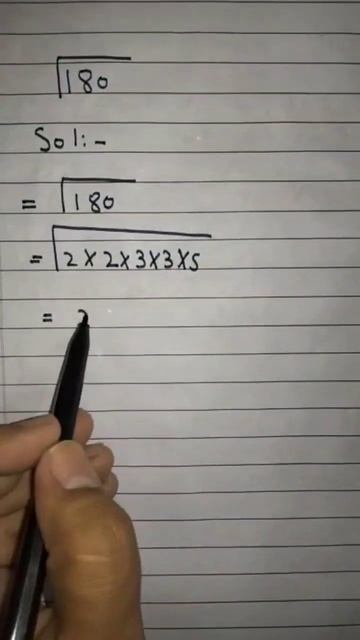 √180
Sol:-
= √180
= √2×2×3×3×5
=